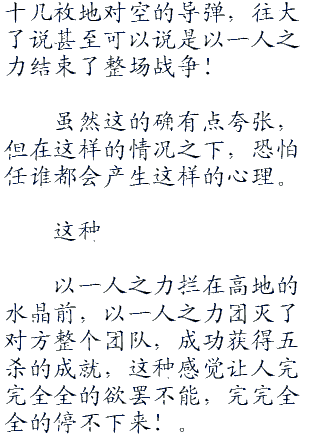 十几枚地对空的导弹，往大
了说甚至可以说是以一人之
力结束了整场战争！
虽然这的确有点夸张，
但在这样的情况之下，恐怕
任谁都会产生这样的心理。
这种
以一人之力拦在高地的
水晶前，以一人之力团灭了
对方整个团队，成功获得五
杀的成就，这种感觉让人完
完全全的欲罢不能，完完全
全的停不下来！。